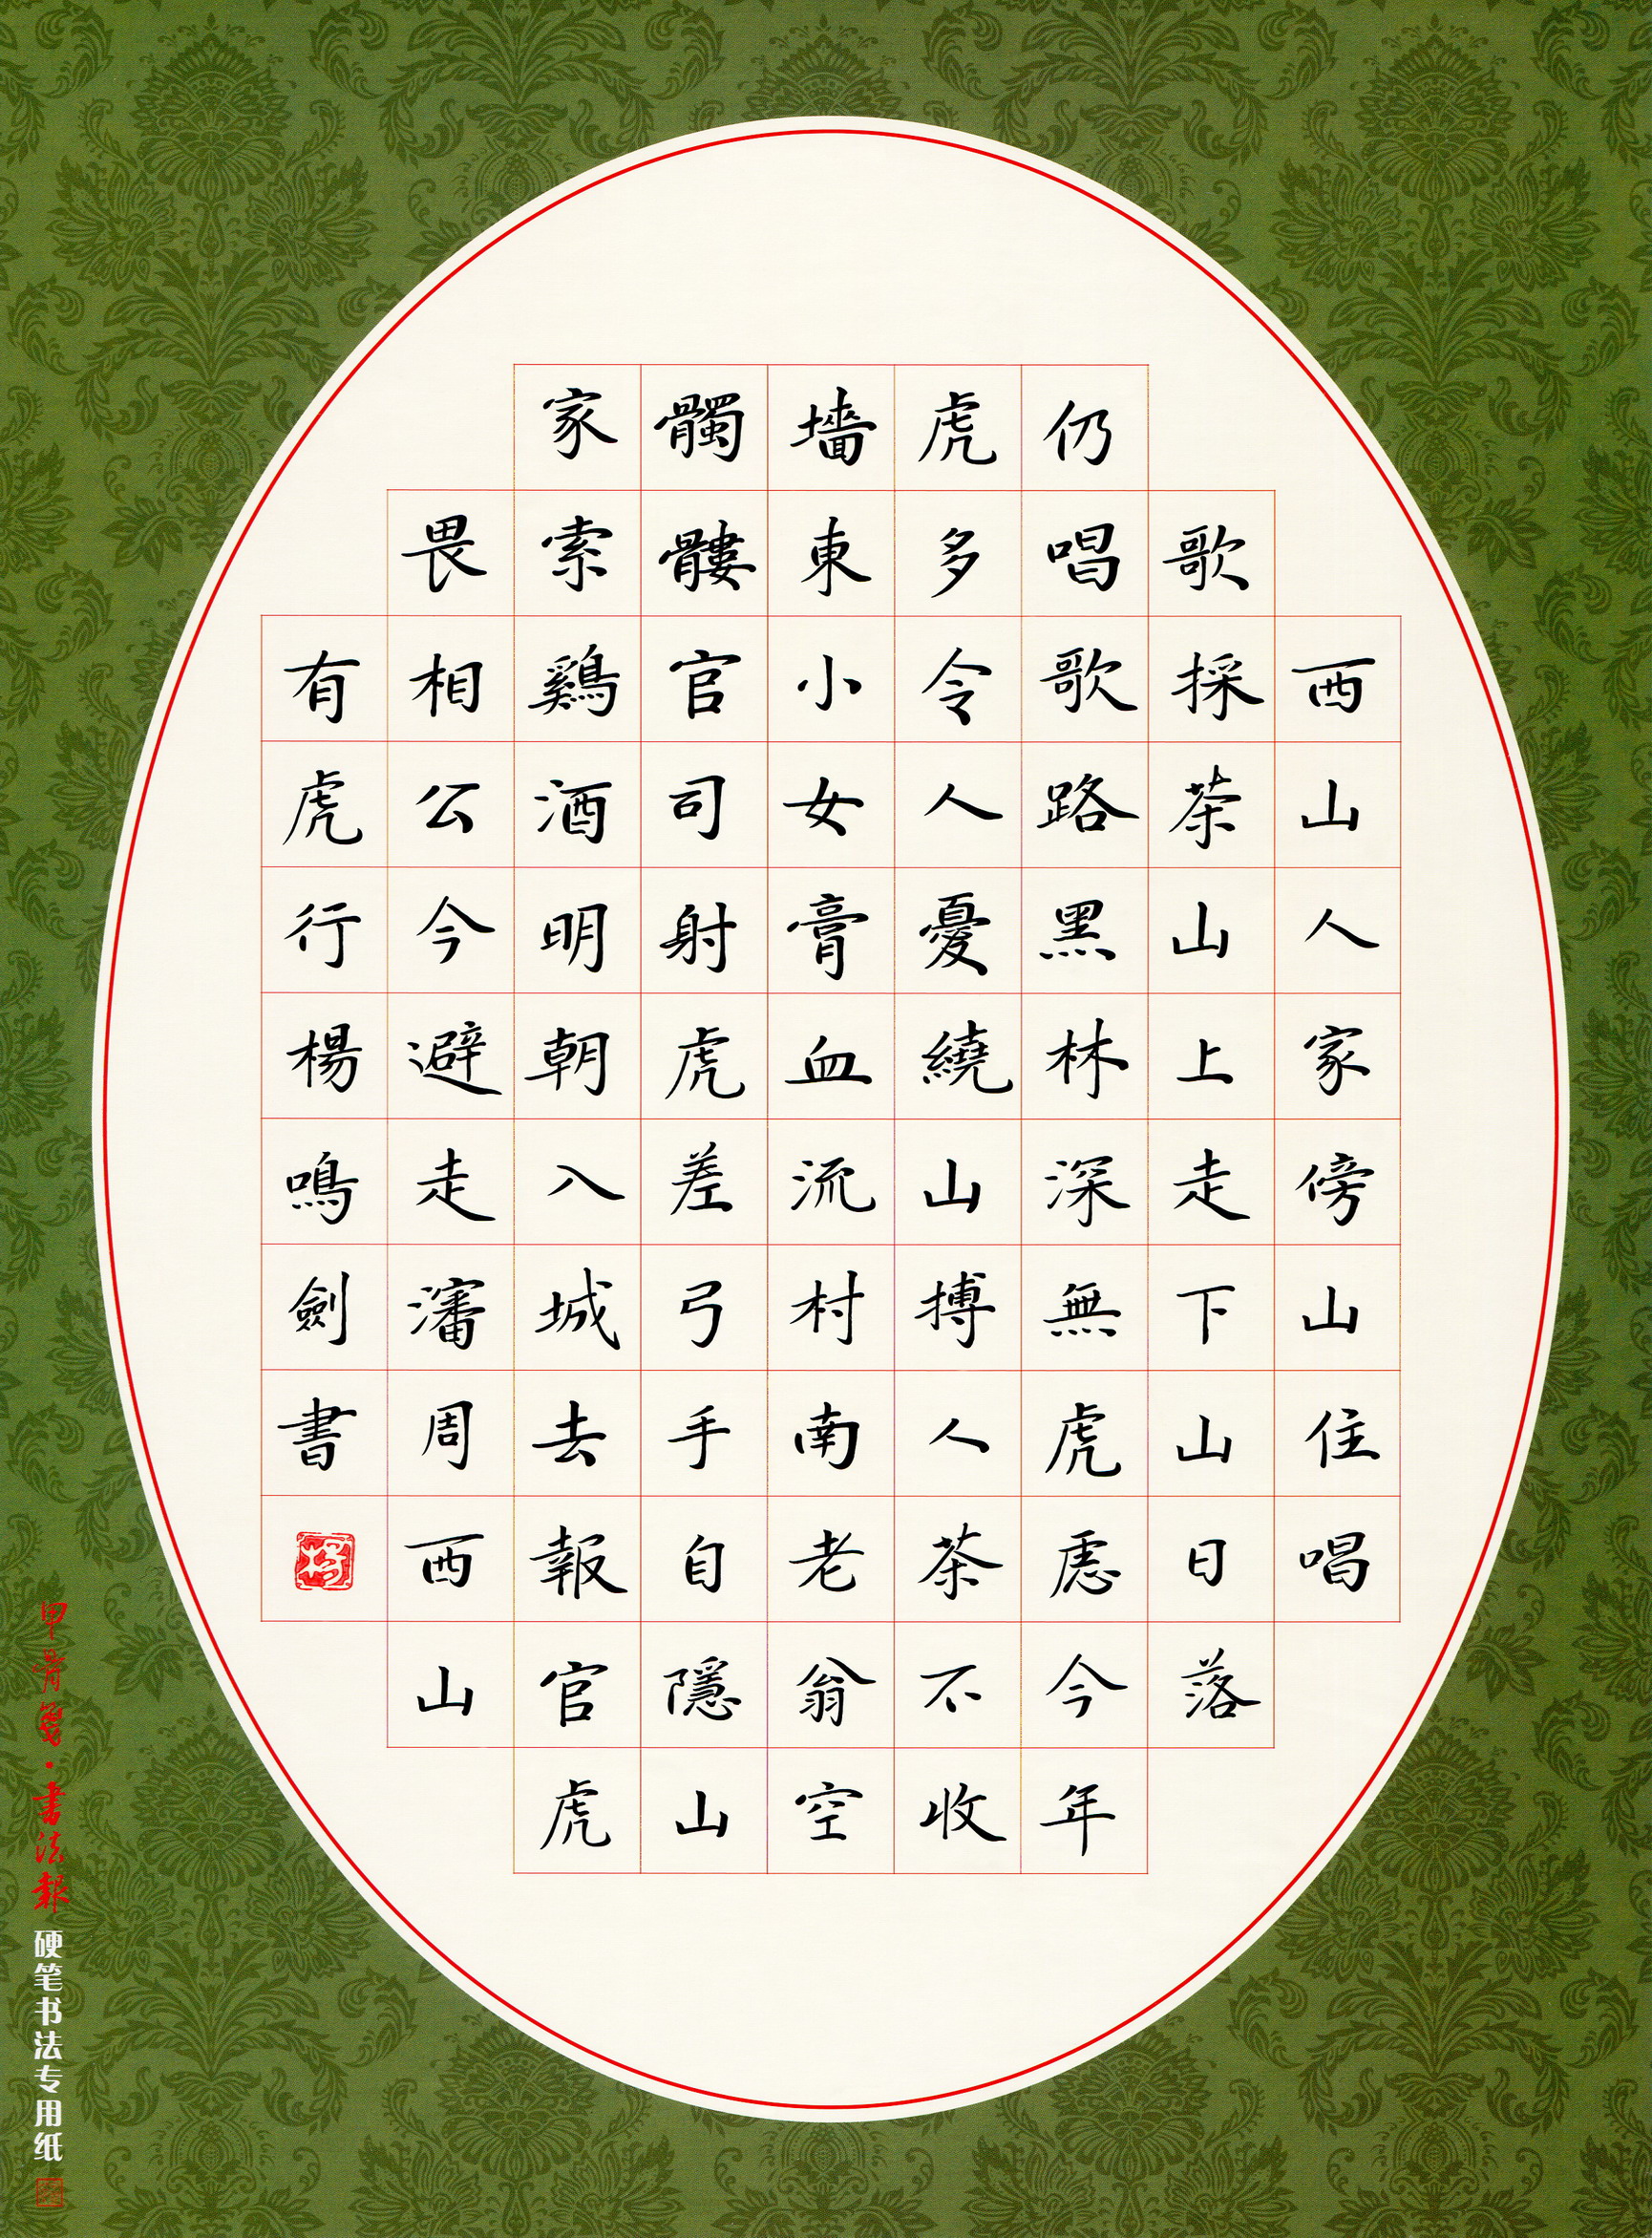 西山人家傍山住唱
歌採茶山上走下山日落
仍唱歌路黑林深無虎慮今年
虎多令人憂繞山搏人茶不收
墻東小女膏血流村南老翁空
髑髏官司射虎差弓手自隱山
家索鷄酒明朝入城去報官虎
畏相公今避走瀋周西山
有虎行楊鳴劍書
甲骨箋·書法報 硬笔书法专用纸